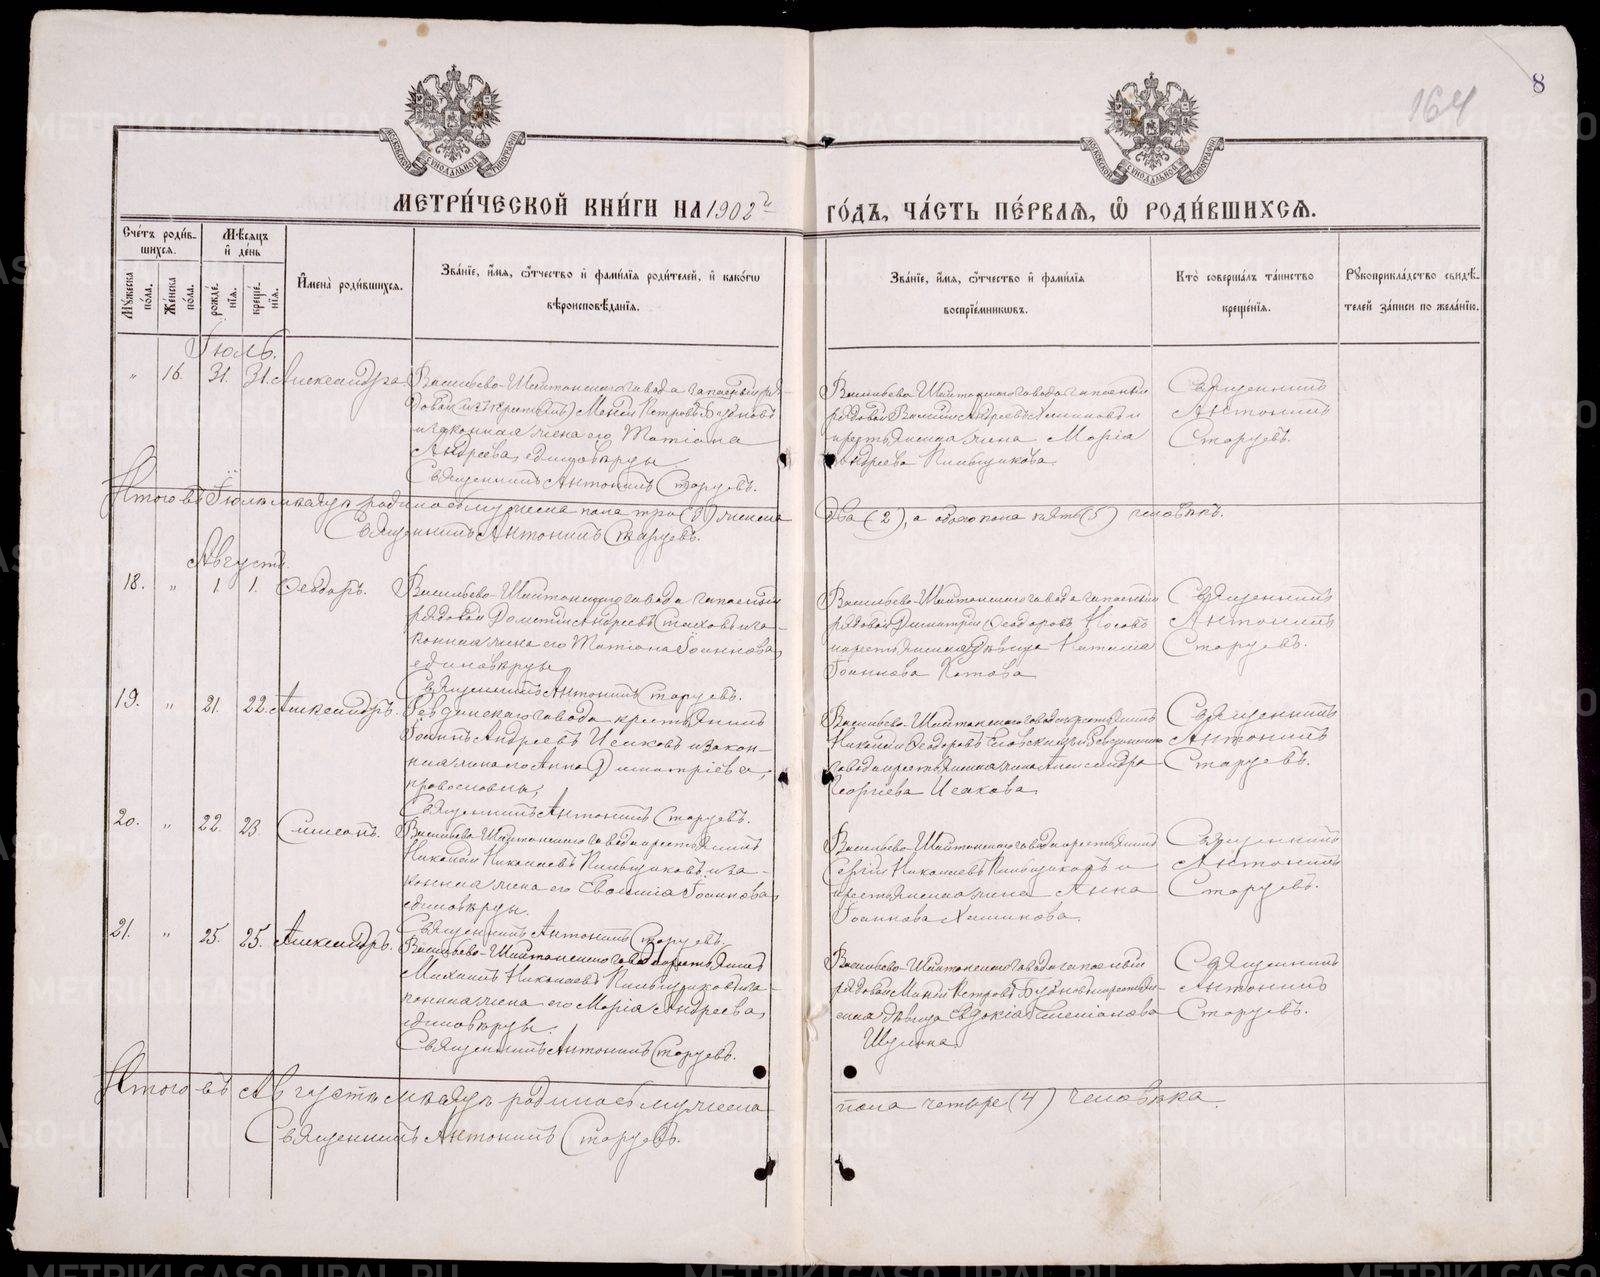 164
8
МОСКОВСКОЙ СУНОДАЛЬНОЙ ТИПОГРАФІИ
МОСКОВСКОЙ СУНОДАЛЬНОЙ ТИПОГРАФІИ
МЕТРИ́ЧЕСКОЙ КНИ́ГИ НА 1902й ГО́ДЪ, ЧА́СТЬ ПЕ́РВАѦ, Ѡ РОДИ́ВШИХСѦ.
Сче́тъ роди́вшихсѧ.
Мꙋ́жеска по́ла.
Же́нска по́ла.
Мѣ́сѧцъ и҆ де́нь
рожде́нїѧ.
креще́нїѧ.
И҆мена̀ роди́вшихсѧ.
Зва́нїе, и҆́мѧ, ѻ҆́тчество и҆ фами́лїѧ роди́телей, и҆ како́гѡ
вѣроисповѣ́данїѧ.
Зва́нїе, и҆́мѧ, ѻ҆́тчество и҆ фами́лїѧ
воспрїе́мникѡвъ.
Кто̀ соверша́лъ та́инство
креще́нїѧ.
Рꙋкоприкла́дство свидѣ́телей за́писи по жела́нїю.
Іюль.
„ 16. 31. 31. Александра
Васильево-Шайтанскаго завода запасный рядовой (изъ крестьянъ) Матѳей Петровъ
и законная жена его Татіана
Андреева, единовѣрцы
Священникъ Антонинъ Старцевъ.
Васильево-Шайтанскаго завода запасный
рядовой Василій Андреевъ и
крестьянская жена Марія
Андреева Пильщикова
Священникъ
Антонинъ
Старцевъ.
Итого въ Іюлѣ мѣсяцѣ родилось мужеска пола три (3) женска два (2), а обоего пола пять (5) человѣкъ.
Священникъ Антонинъ Старцевъ.
Августъ
18. „ 1. 1. Ѳеодоръ.
Васильево-Шайтанскаго завода запасный
рядовой Андреевъ и законная жена его Татіана Іоаннова,
единовѣрцы
Священникъ Антонинъ Старцевъ.
Васильево-Шайтанскаго завода запасный
рядовой Димитрій Ѳеодоровъ Носовъ
и крестьянская дѣвица
Іоаннова Котова
Священникъ
Антонинъ
Старцевъ.
19. „ 21. 22. Александръ.
Ревдинскаго завода крестьянинъ
Іоаннъ Андреевъ Исаковъ и законная жена его Анна Димитріева,
православны,
Священникъ Антонинъ Старцевъ.
Васильево-Шайтанскаго завода крестьянинъ
Николай Ѳеодоровъ и Ревдинскаго
завода крестьянская жена Александра
Георгіева Исакова
Священникъ
Антонинъ
Старцевъ.
20. „ 22. 23. Симеонъ.
Васильево-Шайтанскаго завода крестьянинъ
Николай Николаевъ Пильщиковъ и законная жена его Іоаннова,
единовѣрцы.
Священникъ Антонинъ Старцевъ.
Васильево-Шайтанскаго завода крестьянинъ
Сергій Николаевъ Пильщиковъ и
крестьянская жена Анна
Іоаннова
Священникъ
Антонинъ
Старцевъ.
21. „ 25. 25. Александръ.
Васильево-Шайтанскаго завода крестьянинъ
Михаилъ Николаевъ Пильщиковъ и законная жена его Марія Андреева,
единовѣрцы.
Священникъ Антонинъ Старцевъ.
Васильево-Шайтанскаго завода запасный
рядовой Петровъ и крестьянская дѣвица Евдокія
Шулина
Священникъ
Антонинъ
Старцевъ.
Итого въ Августѣ мѣсяцѣ родилось мужеска пола четыре (4) человѣка.
Священникъ Антонинъ Старцевъ.
METRIKI.GASO-URAL.RU